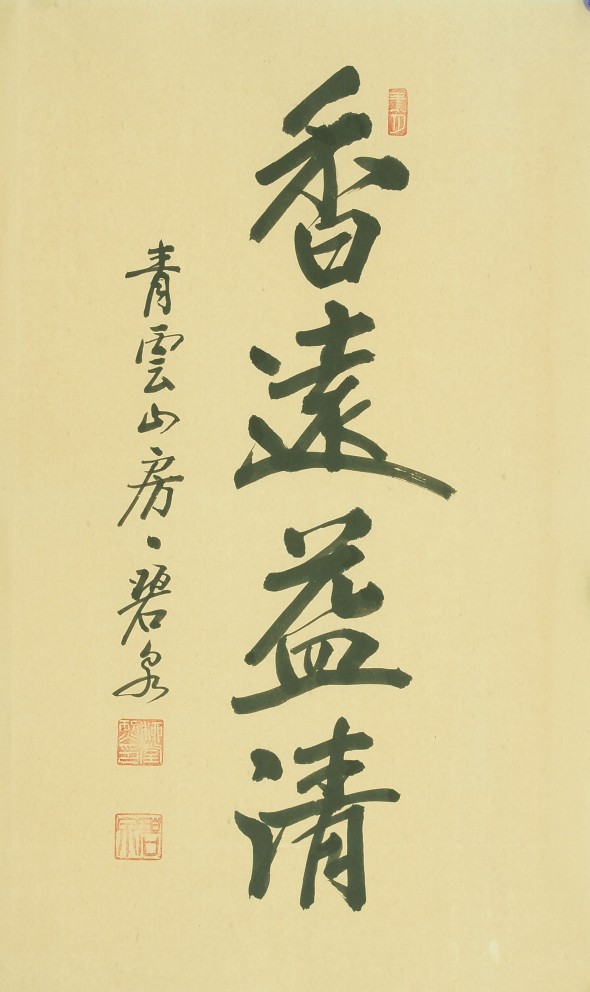 香遠益清
青雲山房、碧泉